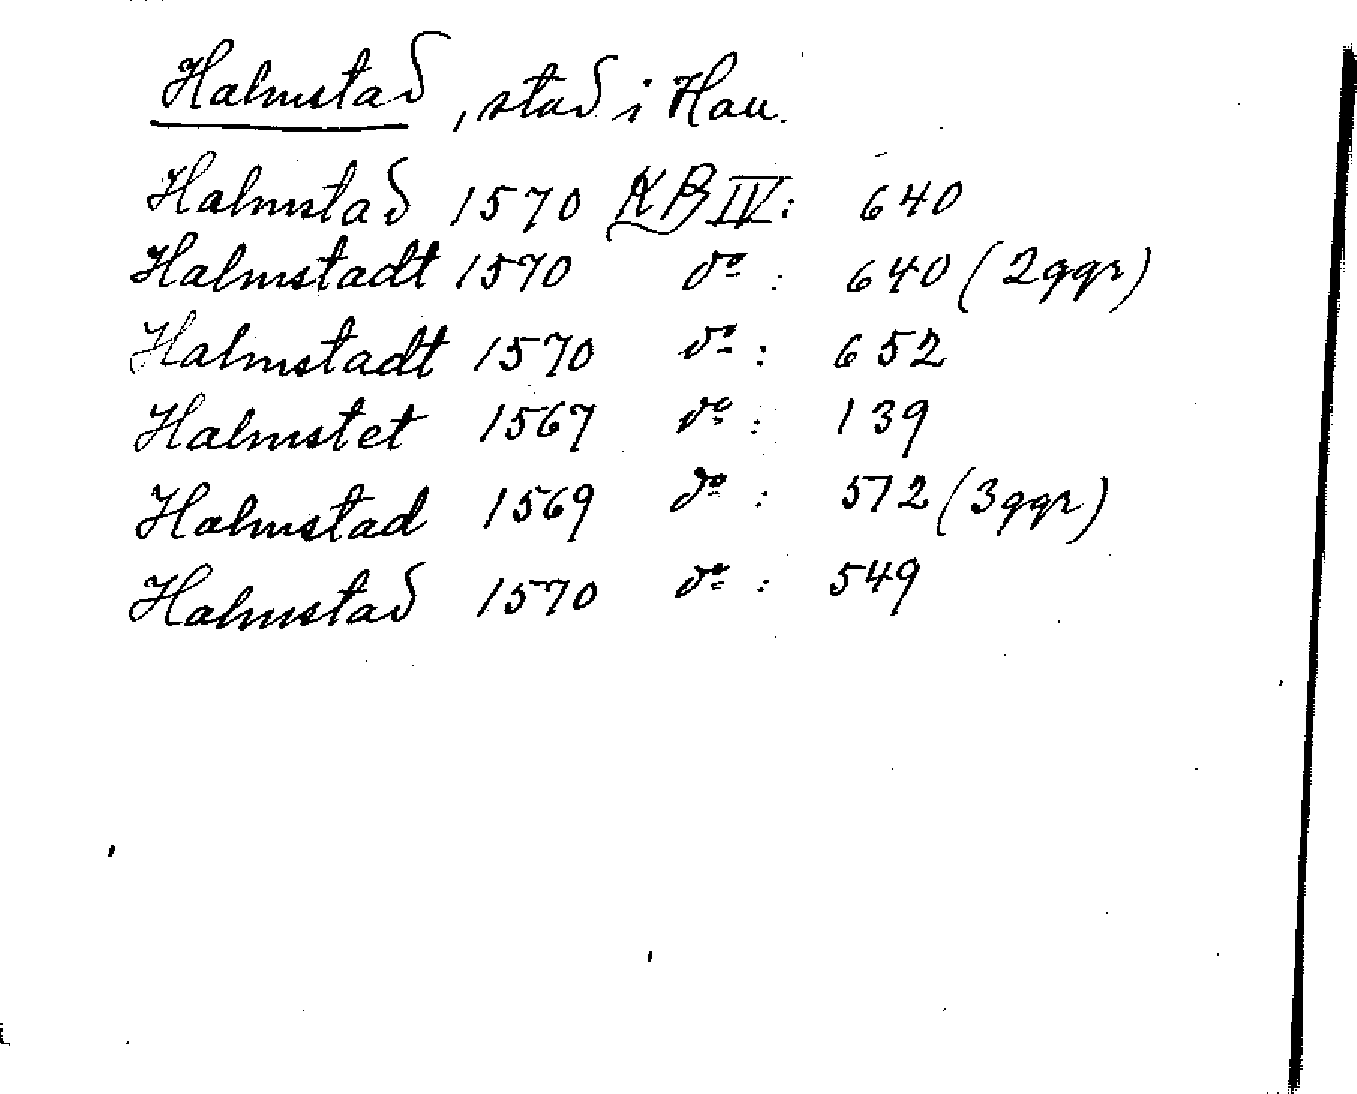 Halmstad, stad i Hall.
Halmstad 1570 KB IV: 640
Halmstadt 1570 do : 640 (2 ggr)
Halmstadt 1570 do : 652
Halmstet 1567 do : 139
Halmstad 1569 do : 572 (3 ggr)
Halmstad 1570 do : 549